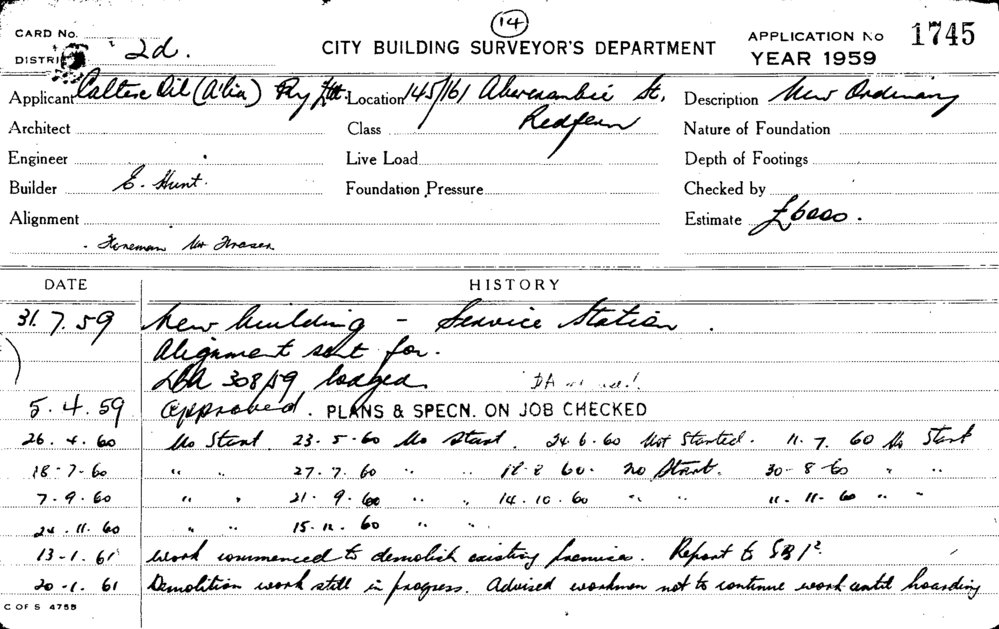 14
CARD No.
CITY BUILDING SURVEYOR'S DEPARTMENT
APPLICATION No 1745
DISTRI 2d.
YEAR 1959
Applicant Caltex Oil (A'lia) Pty Ltd. Location 145/161 Abercrombie St, Description New Ordinary
Redfern
Architect Class Nature of Foundation
Engineer Live Load Depth of Footings
Builder E. Hunt. Foundation Pressure Checked by
Alignment Estimate £6000.
Foreman Mr Fraser
DATE HISTORY
31.7.59 New building - Service Station.
Alignment sent for.
308/59 lodged. DA
5.4.59 Approved. PLANS & SPECN. ON JOB CHECKED
26.4.60 No Start 23-5-60 No start. 24.6.60 Not Started. 11.7.60 No Start
18-7-60 " " 27.7.60 " " 60. No Start. 30-8-60 " "
7.9.60 " " 21.9.60 " " 14.10.60 " " 11-11-60 " "
24.11.60 " " 15.12.60 " "
13-1.61 Work commenced to demolish existing premises. Report to
20-1.61 Demolition work still in progress. Advised workmen not to continue work until hoarding
C OF S 4755